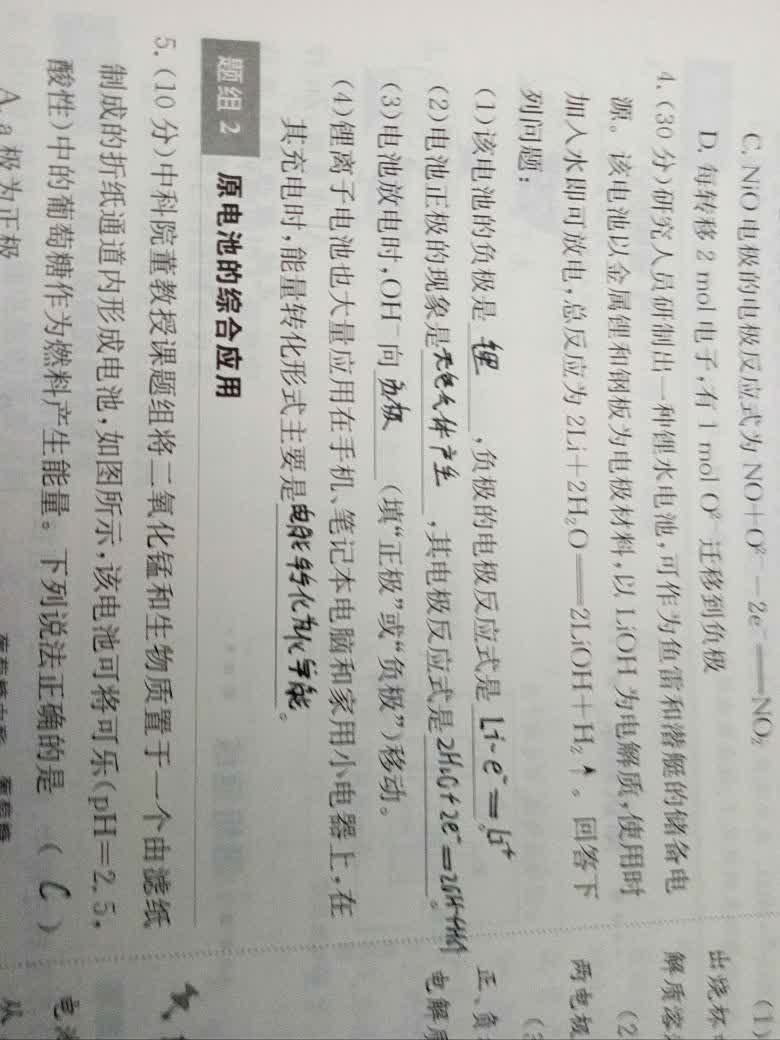 C. NiO 电极的电极反应式为 NO+O²⁻-2e⁻══NO₂
D. 每转移 2 mol 电子,有 1 mol O²⁻ 迁移到负极
4. (30 分)研究人员研制出一种锂水电池,可作为鱼雷和潜艇的储备电
源。该电池以金属锂和钢板为电极材料,以 LiOH 为电解质,使用时
加入水即可放电,总反应为 2Li+2H₂O══2LiOH+H₂↑。回答下
列问题:
(1)该电池的负极是 锂 ,负极的电极反应式是 Li-e⁻=Li⁺ 。
(2)电池正极的现象是 无色气体产生 ,其电极反应式是 2H₂O+2e⁻=2OH⁻+H₂↑ 。
(3)电池放电时,OH⁻ 向 负极 (填“正极”或“负极”)移动。
(4)锂离子电池也大量应用在手机、笔记本电脑和家用小电器上,在
其充电时,能量转化形式主要是 电能转化为化学能 。
题组 2 原电池的综合应用
5. (10 分)中科院董教授课题组将二氧化锰和生物质置于一个由滤纸
制成的折纸通道内形成电池,如图所示,该电池可将可乐(pH=2.5,
酸性)中的葡萄糖作为燃料产生能量。下列说法正确的是 ( C )
A. a 极为正极
(1)
出烧杯
解质溶
(2
两电极
(3
正、负
电解质